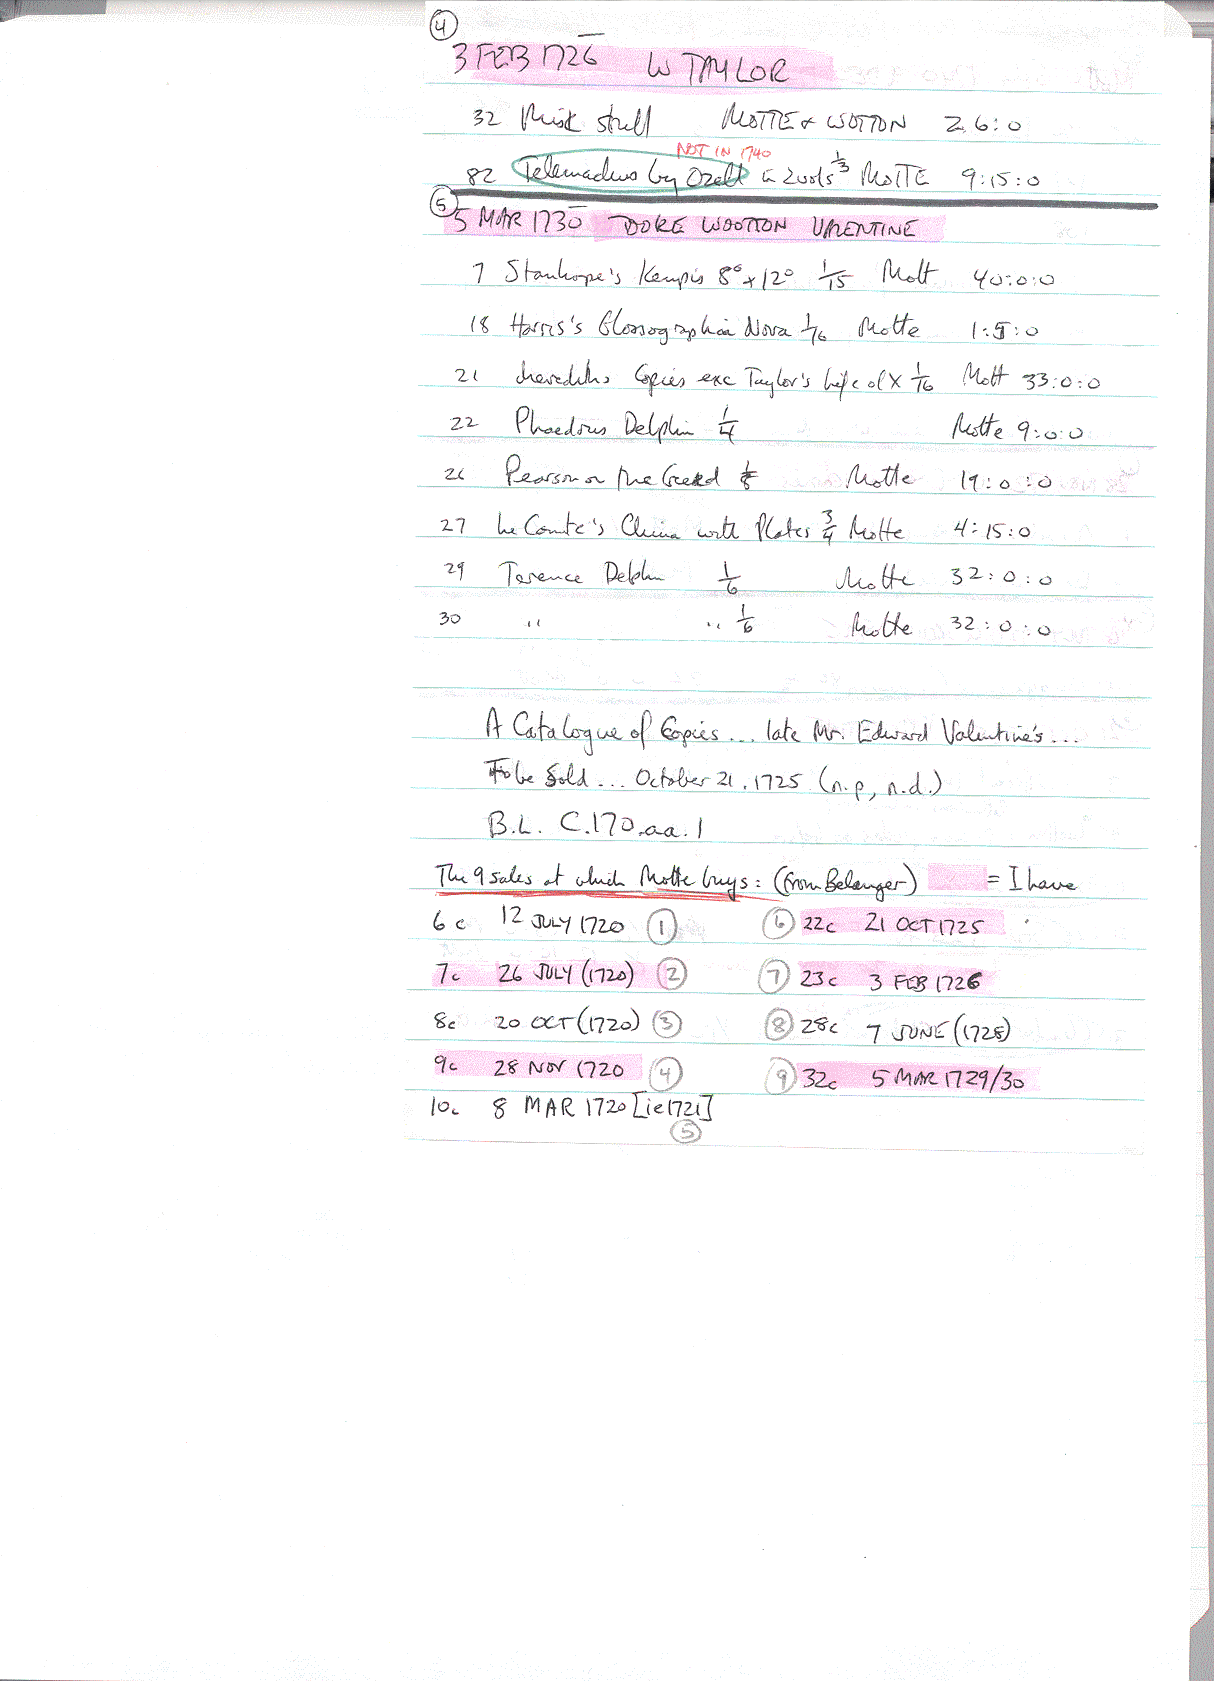 4
3 FEB 1726 W TAYLOR
32 Misk stuff MOTTE & WOTTON 2.6:0
NOT IN 1740
82 Telemachus by Ozell in 2 vols 1/3 MOTTE 9:15:0
5
5 MAR 1730 DOKE WOOTTON VALENTINE
7 Stanhope's Kempis 8° & 12° 1/15 Mott 40:0:0
18 Harris's Glossographia Nova 1/16 Motte 1:5:0
21 Merediths Copies exc Taylor's Life of X 1/16 Mott 33:0:0
22 Phaedrus Delphin 1/4 Motte 9:0:0
26 Pearson on the Creed 1/8 Motte 19:0:0
27 Le Comte's China with Plates 3/4 Motte 4:15:0
29 Terence Delphin 1/6 Motte 32:0:0
30 " " 1/6 Motte 32:0:0
A Catalogue of Copies ... late Mr. Edward Valentine's ...
To be Sold ... October 21, 1725 (n.p, n.d.)
B.L. C.170.aa.1
The 9 sales at which Motte buys: (from Belanger) = I have
6c 12 JULY 1720 1 6 22c 21 OCT 1725
7c 26 JULY (1720) 2 7 23c 3 FEB 1726
8c 20 OCT (1720) 3 8 28c 7 JUNE (1728)
9c 28 NOV 1720 4 9 32c 5 MAR 1729/30
10c 8 MAR 1720 [ie 1721]
5